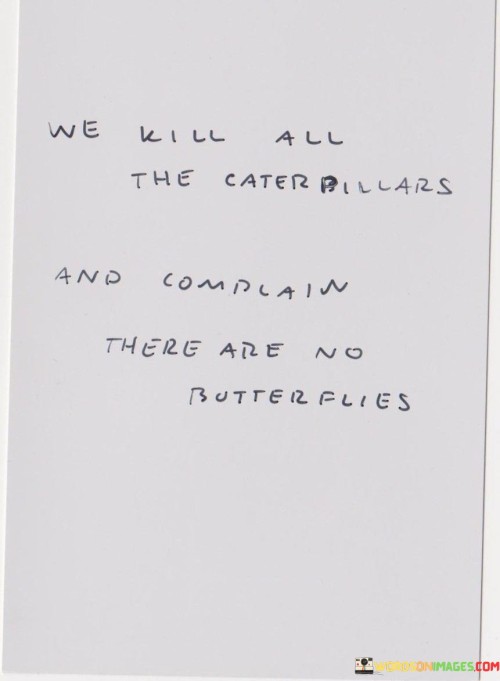 WE KILL ALL
THE CATERPILLARS
AND COMPLAIN
THERE ARE NO
BUTTERFLIES